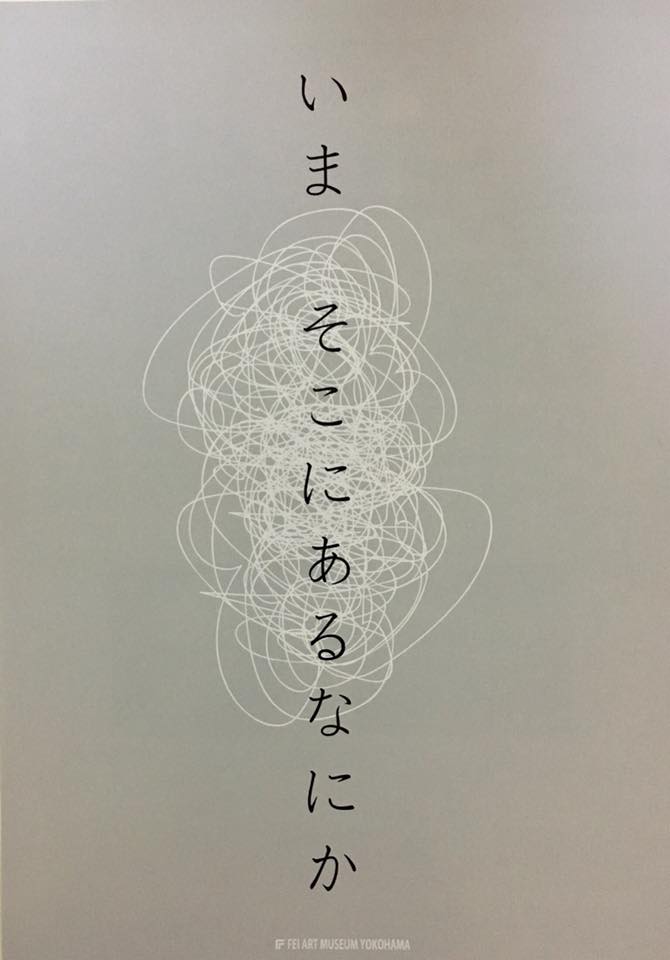 いま そこにあるなにか
FEI ART MUSEUM YOKOHAMA